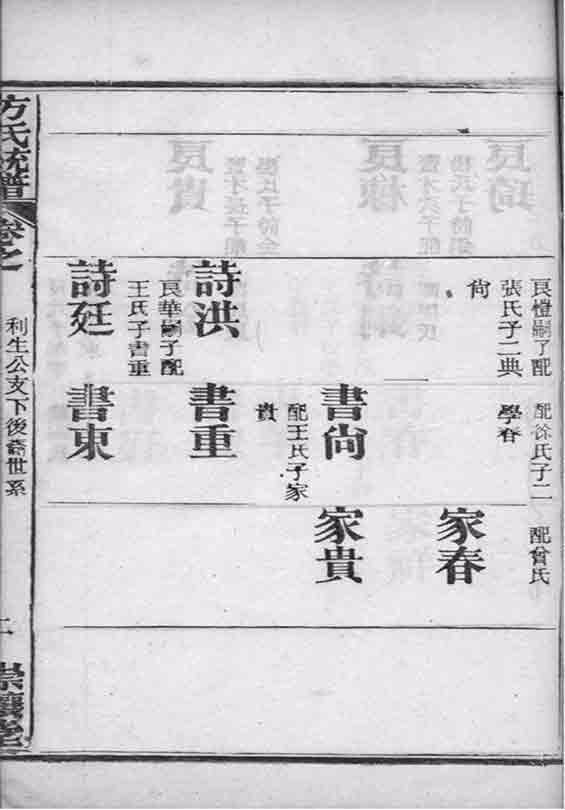 良橙嗣子配
張氏子二典
尙
配徐氏子二
學春
配曾氏
家春
書尙
配王氏子家
貴
家貴
詩洪
良華嗣子配
王氏子書重
書重
詩廷
書東
方氏統譜
卷之
利生公支下後裔世系
二